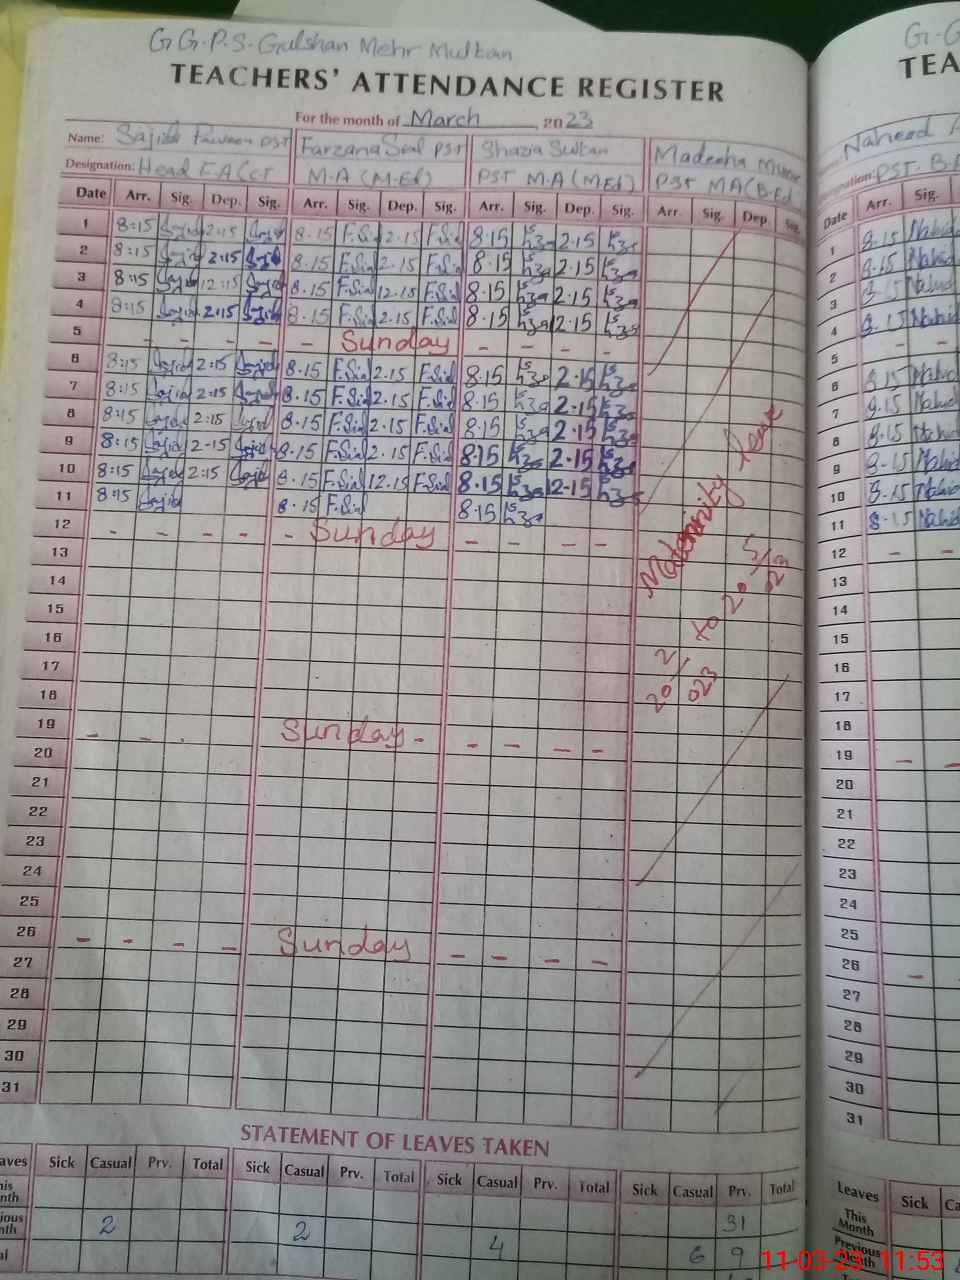 G.G.P.S. Gulshan Mehr Multan
TEACHERS' ATTENDANCE REGISTER
For the month of March, 2023
Name: Sajida Parveen PST Farzana Sial PST Shazia Sultan Madeeha
Designation: Head F.A (CT M.A (M-Ed) PST M.A (M.Ed) PST MA (B.Ed
Date Arr. Sig. Dep. Sig. Arr. Sig. Dep. Sig. Arr. Sig. Dep. Sig. Arr. Sig. Dep. Sig.
1 8:15 Sajid 2:15 Sajid 8.15 F.Sial 2.15 F.Sial 8.15 2.15
2 8:15 Sajid 2:15 Sajid 8.15 F.Sial 2.15 F.Sial 8.15 2.15
3 8:15 Sajid 12:15 Sajid 8.15 F.Sial 12.15 F.Sial 8.15 2.15
4 8:15 Sajid 2:15 Sajid 8.15 F.Sial 2.15 F.Sial 8.15 12.15
5 - - - - - Sunday - - - -
6 8:15 Sajid 2:15 Sajid 8.15 F.Sial 2.15 F.Sial 8.15 2.15
7 8:15 Sajid 2:15 Sajid 8.15 F.Sial 2.15 F.Sial 8.15 2.15
8 8:15 Sajid 2:15 Sajid 8.15 F.Sial 2.15 F.Sial 8.15 2.15
9 8:15 Sajid 12-15 Sajid 8.15 F.Sial 2.15 F.Sial 8.15 2.15
10 8:15 Sajid 2:15 Sajid 8.15 F.Sial 12.15 F.Sial 8.15 12.15
11 8:15 Sajid 8.15 F.Sial 8.15
12 - - - - - Sunday - - - -
13
14
15
16
17
18
19 - - - Sunday - - - - -
20
21
22
23
24
25
26 - - - - Sunday - - - -
27
28
29
30
31
Maternity leave
20/2/023 to 20 5/23
STATEMENT OF LEAVES TAKEN
Sick Casual Prv. Total Sick Casual Prv. Total Sick Casual Prv. Total Sick Casual Prv. Total
31
2 2 4 6 9
G-G
TEA
Naheed
PST. B.A
Date Arr. Sig.
1 8.15 Nahid
2 8.15 Nahid
3 8.15 Nahid
4 8.15 Nahid
5 - -
6 8.15 Nahid
7 8.15 Nahid
8 8.15 Nahid
9 8.15 Nahid
10 8.15 Nahid
11 8.15 Nahid
12 - -
13
14
15
16
17
18
19 - -
20
21
22
23
24
25
26 -
27
28
29
30
31
Leaves Sick
This Month
Previous Month
11-03-23 11:53